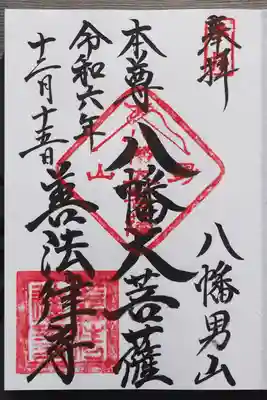 奉拝
八幡男山
本尊 八幡大菩薩
令和六年
十二月十五日
善法律寺